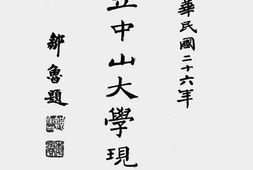 華民國二十六年
立中山大學現
鄒魯題